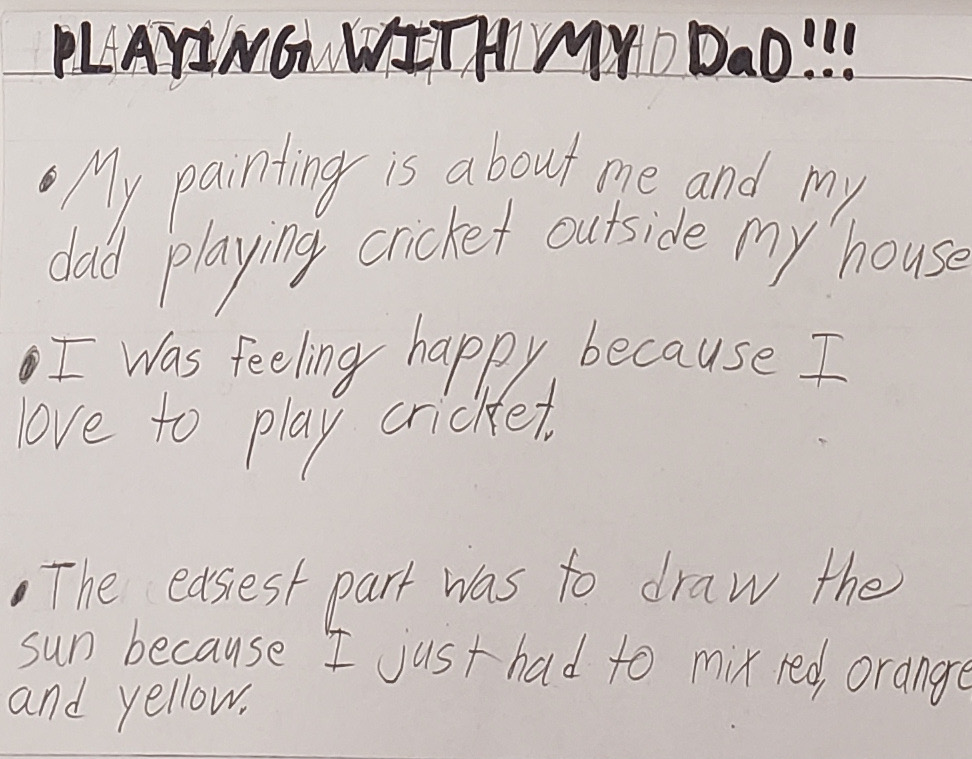 PLAYING WITH MY DaD!!!
• My painting is about me and my
dad playing cricket outside my house
• I was feeling happy because I
love to play cricket.
• The easiest part was to draw the
sun because I just had to mix red, orange
and yellow.